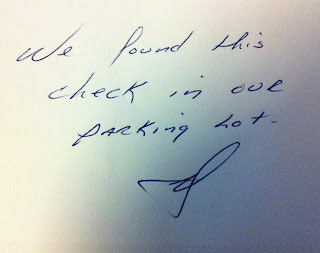 We found this
check in our
parking lot.